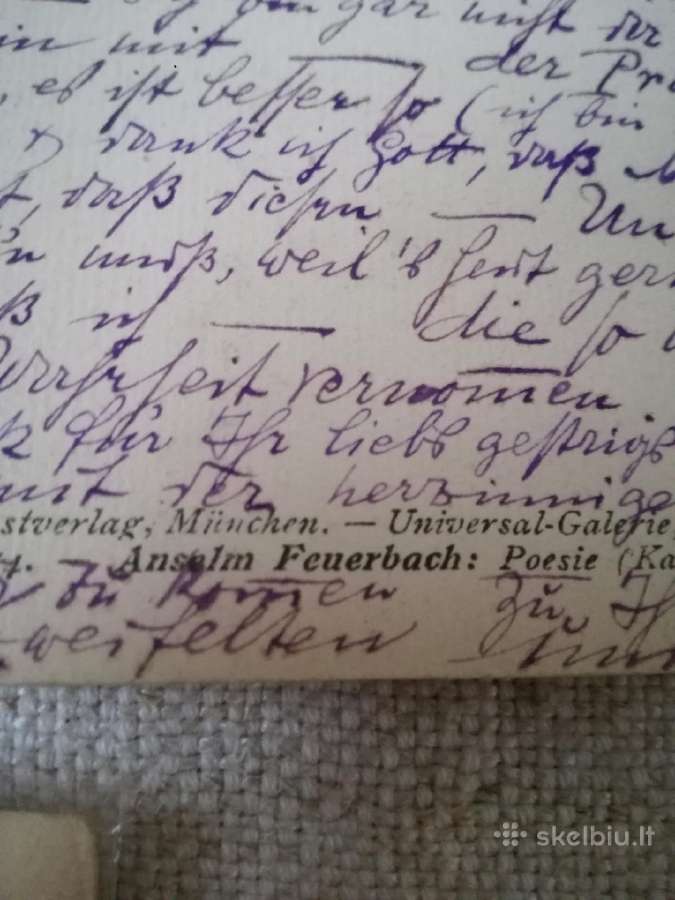 gar nicht der
in mit — der Pr
, es ist besser so (ich bin
& dank ich Gott, daß
t, daß diesen — Un
n muß, weil's heut ger
ß ich — die so
Wahrheit vernomen
k für Ihr liebs gestrigs
mit der herzinnige
stverlag, München. — Universal-Galerie
4. Anselm Feuerbach: Poesie (Ka
zu komen zu Ih
zweifelten
skelbiu.lt